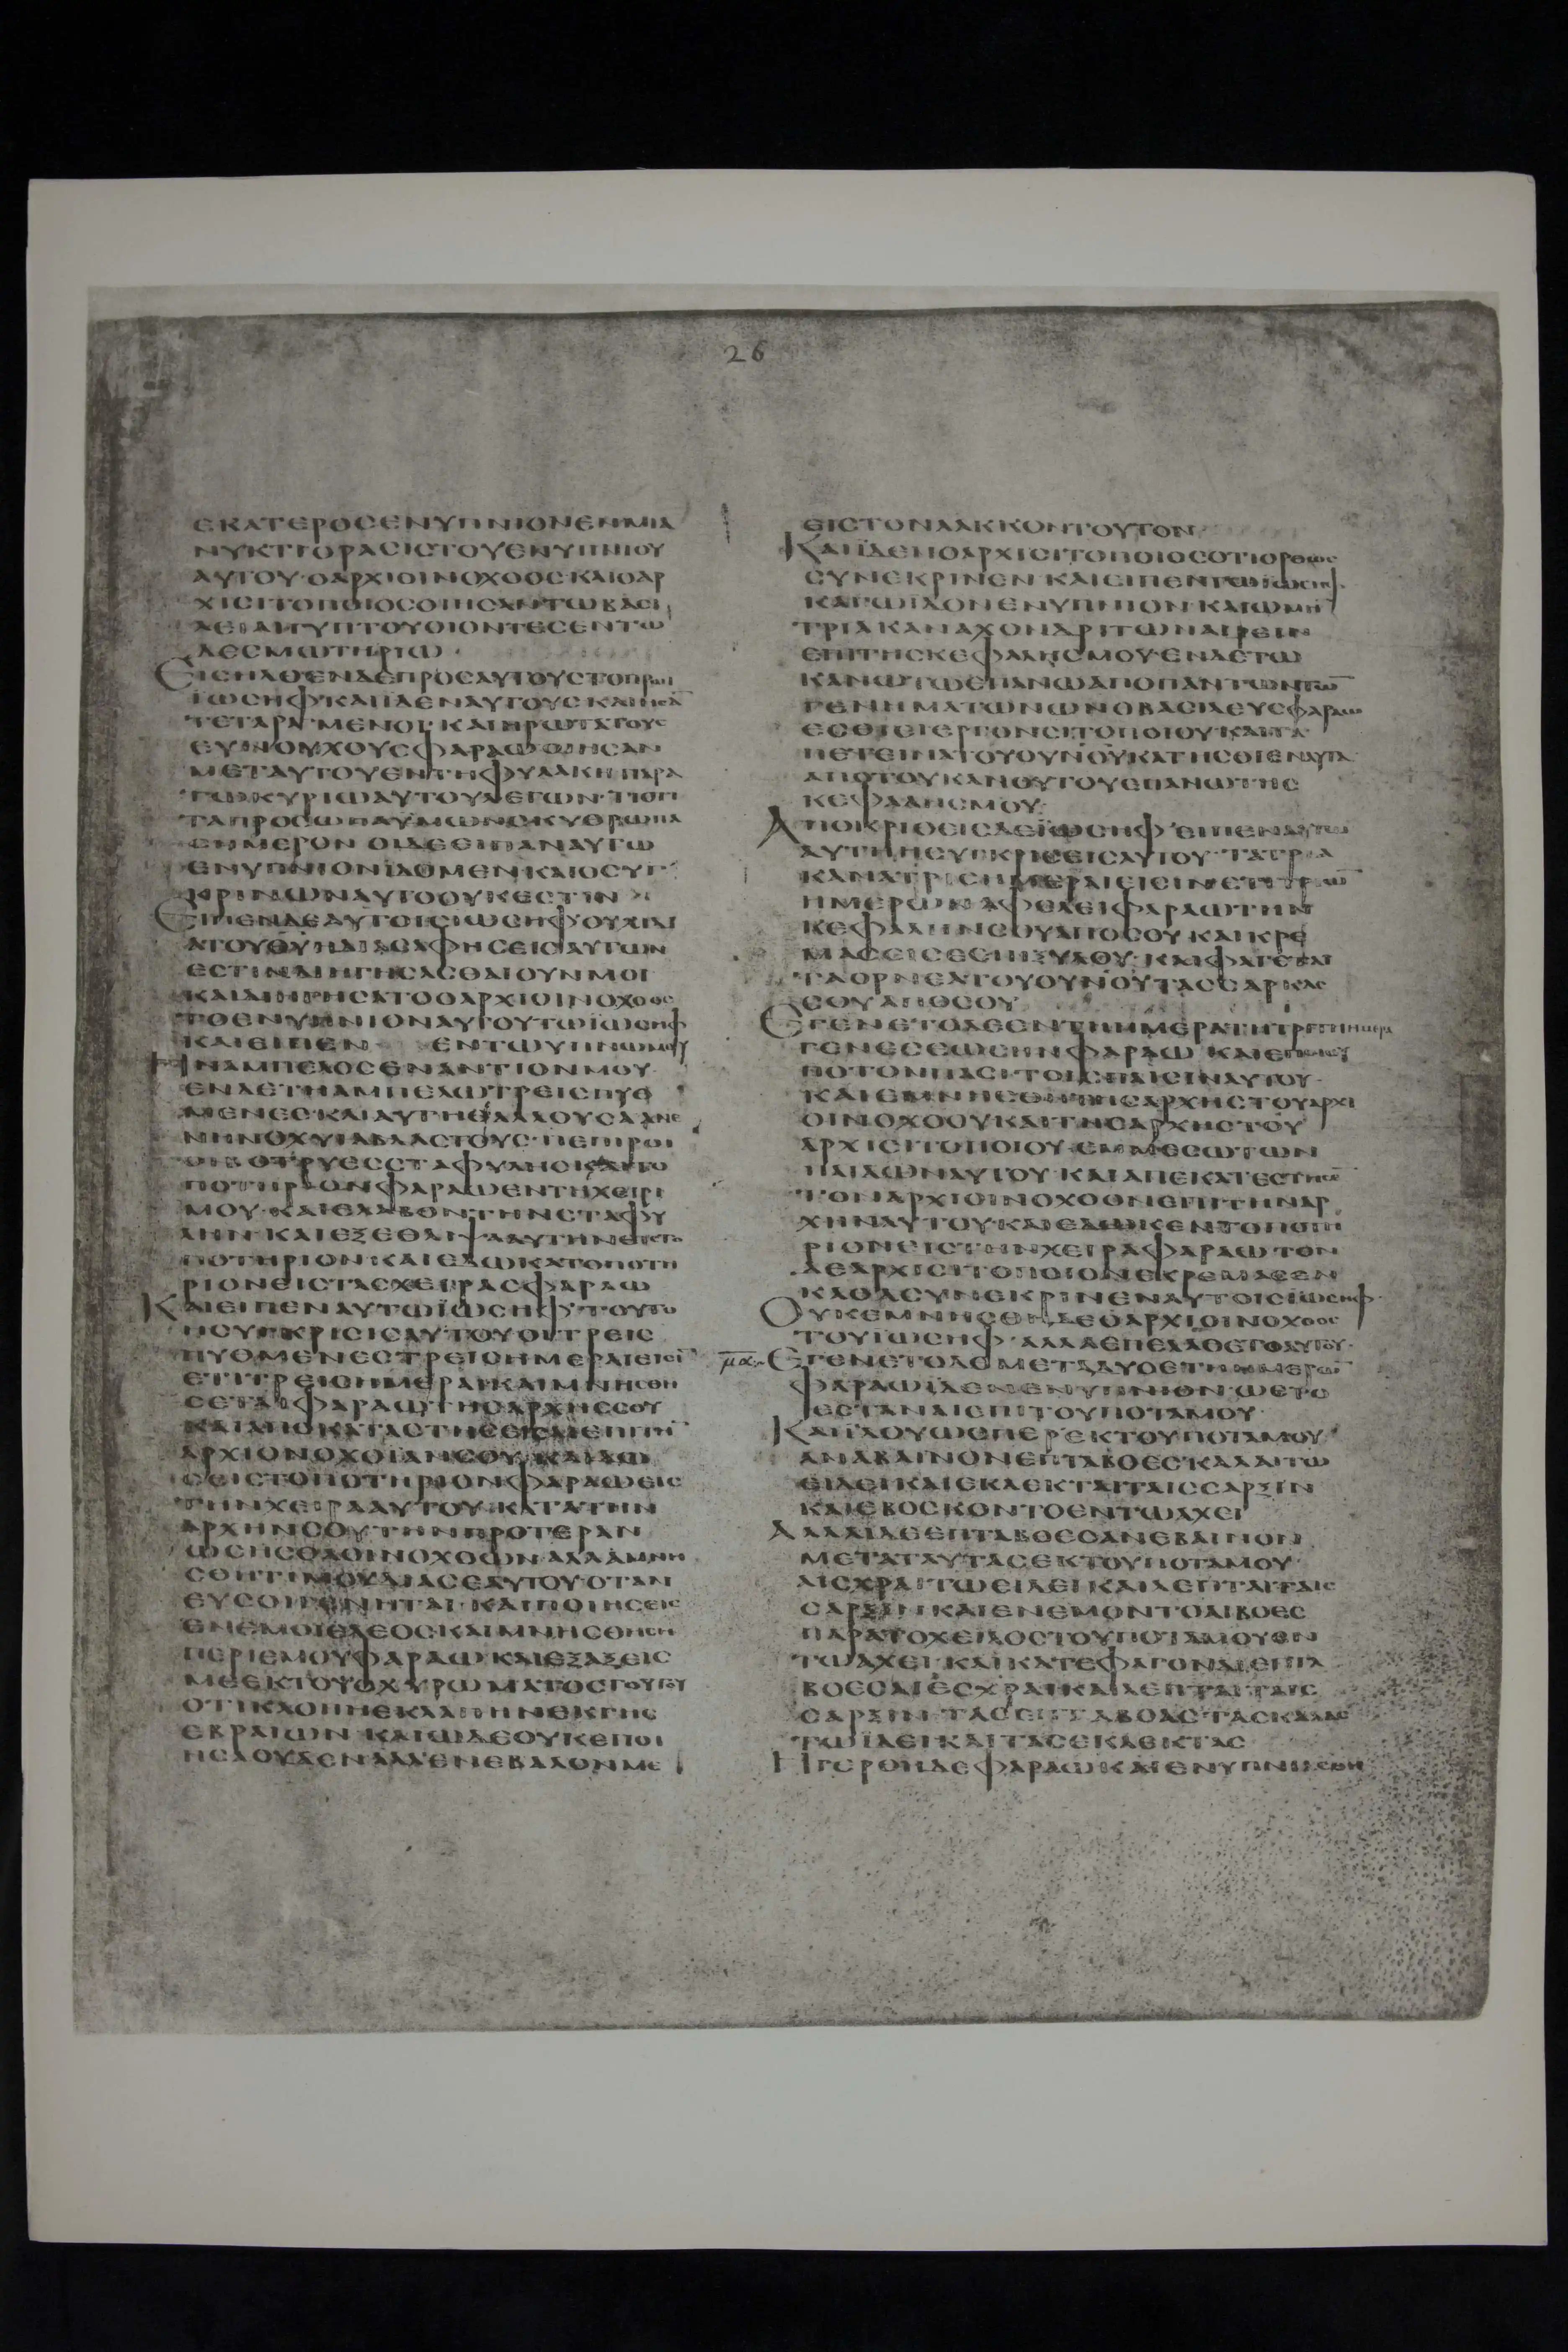 26
ΕΚΑΤΕΡΟСΕΝΥΠΝΙΟΝΕΝΜΙΑ
ΝΥΚΤΙΟΡΑСΙСΤΟΥΕΝΥΠΝΙΟΥ
ΑΥΤΟΥ·ΟΑΡΧΙΟΙΝΟΧΟΟС·ΚΑΙΟΑΡ
ΧΙСΙΤΟΠΟΙΟСΟΙΗСΑΝΤΩΒΑСΙ
ΛΕΙΑΙΓΥΠΤΟΥΟΙΟΝΤΕСΕΝΤΩ
ΔΕСΜΩΤΗΡΙΩ·
ΕΙСΗΛΘΕΝΔΕΠΡΟСΑΥΤΟΥСΤΟΠΡΩΙ
ΪΩСΗΦ·ΚΑΙΪΔΕΝΑΥΤΟΥСΚΑΙΗСΑ̅
ΤΕΤΑΡΑΓΜΕΝΟΙ·ΚΑΙΗΡΩΤΑΤΟΥС
ΕΥΝΟΥΧΟΥСΦΑΡΑΩΟΙΗСΑΝ
ΜΕΤΑΥΤΟΥΕΝΤΗΦΥΛΑΚΗΠΑΡΑ
ΤΩΚΥΡΙΩΑΥΤΟΥΛΕΓΩΝ·ΤΙΟΤΙ
ΤΑΠΡΟСΩΠΑΫΜΩΝСΚΥΘΡΩΠΑ
СΗΜΕΡΟΝ ΟΙΔΕΕΙΠΑΝΑΥΤΩ
ΕΝΥΠΝΙΟΝΪΔΟΜΕΝΚΑΙΟСΥΓ
ΚΡΙΝΩΝΑΥΤΟΟΥΚΕСΤΙΝ
ΕΙΠΕΝΔΕΑΥΤΟΙСΙΩСΗΦ·ΟΥΧΙΔΙ
ΑΤΟΥΘΥΗΔΙΑСΑΦΗСΕΙСΑΥΤΩΝ
ΕСΤΙΝΔΙΗΓΗСΑСΘΑΙΟΥΝΜΟΙ
ΚΑΙΔΙΗΓΗСΑΤΟΟΑΡΧΙΟΙΝΟΧΟΟС
ΤΟΕΝΥΠΝΙΟΝΑΥΤΟΥΤΩΪΩСΗΦ
ΚΑΙΕΙΠΕΝ ΕΝΤΩΥΠΝΩΜΟΥ
ΗΝΑΜΠΕΛΟСΕΝΑΝΤΙΟΝΜΟΥ·
ΕΝΔΕΤΗΑΜΠΕΛΩΤΡΕΙСΠΥΘ
ΜΕΝΕС·ΚΑΙΑΥΤΗΘΑΛΛΟΥСΑΑΝΕ
ΝΗΝΟΧΥΙΑΒΛΑСΤΟΥС·ΠΕΠΙΡΟΙ
ΟΙΒΟΤΡΥΕССΤΑΦΥΛΗСΚΑΙΤΟ
ΠΟΤΗΡΙΟΝΦΑΡΑΩΕΝΤΗΧΕΙΡΙ
ΜΟΥ·ΚΑΙΕΛΑΒΟΝΤΗΝСΤΑΦΥ
ΛΗΝ ΚΑΙΕΞΕΘΛΙΨΑΑΥΤΗΝΕΙСΤΟ
ΠΟΤΗΡΙΟΝ·ΚΑΙΕΔΩΚΑΤΟΠΟΤΗ
ΡΙΟΝΕΙСΤΑСΧΕΙΡΑСΦΑΡΑΩ
ΚΑΙΕΙΠΕΝΑΥΤΩΪΩСΗΦ·ΤΟΥΤΟ
ΗСΥΓΚΡΙСΙСΑΥΤΟΥΟΙΤΡΕΙС
ΠΥΘΜΕΝΕСΤΡΕΙСΗΜΕΡΑΙΕΙСΙ
ΕΤΙΤΡΕΙСΗΜΕΡΑΙΚΑΙΜΝΗСΘΗ
СΕΤΑΙΦΑΡΑΩΤΗСΑΡΧΗССΟΥ
ΚΑΙΑΠΟΚΑΤΑСΤΗСΕΙСΑΙΕΠΙΤΗ̅
ΑΡΧΙΟΝΟΧΟΪΑΝСΟΥ·ΚΑΙΔΩ
СΕΙСΤΟΠΟΤΗΡΙΟΝΦΑΡΑΩΕΙС
ΤΗΝΧΕΙΡΑΑΥΤΟΥ·ΚΑΤΑΤΗΝ
ΑΡΧΗΝСΟΥΤΗΝΠΡΟΤΕΡΑΝ
ΩСΗСΘΑΟΙΝΟΧΟΩΝ·ΑΛΛΑΜΝΗ
СΘΗΤΙΜΟΥΔΙΑСΕΑΥΤΟΥ·ΟΤΑΝ
ΕΥСΟΙΓΕΝΗΤΑΙ·ΚΑΙΠΟΙΗСΕΙС
ΕΝΕΜΟΙΕΛΕΟСΚΑΙΜΝΗСΘΗСΗ
ΠΕΡΙΕΜΟΥΦΑΡΑΩ·ΚΑΙΕΞΑΞΕΙС
ΜΕΕΚΤΟΥΟΧΥΡΩΜΑΤΟСΤΟΥΤΟΥ
ΟΤΙΚΛΟΠΗΕΚΛΑΠΗΝΕΚΓΗС
ΕΒΡΑΙΩΝ·ΚΑΙΩΔΕΟΥΚΕΠΟΙ
ΗСΑΟΥΔΕΝΑΛΛΕΝΕΒΑΛΟΝΜΕ
ΕΙСΤΟΝΛΑΚΚΟΝΤΟΥΤΟΝ
ΚΑΙΪΔΕΝΟΑΡΧΙСΙΤΟΠΟΙΟСΟΤΙΟΡΘΩС
СΥΝΕΚΡΙΝΕΝ·ΚΑΙΕΙΠΕΝΤΩΪΩСΗΦ·
ΚΑΓΩΪΔΟΝΕΝΥΠΝΙΟΝ·ΚΑΙΩΜΗ̅
ΤΡΙΑΚΑΝΑΧΟΝΔΡΙΤΩΝΑΙΡΕΙΝ
ΕΠΙΤΗСΚΕΦΑΛΗСΜΟΥ·ΕΝΔΕΤΩ
ΚΑΝΩΤΩΕΠΑΝΩΑΠΟΠΑΝΤΩΝΤΩ̅
ΓΕΝΗΜΑΤΩΝΩΝΟΒΑСΙΛΕΥСΦΑΡΑΩ
ΕСΘΙΕΙΕΡΓΟΝСΙΤΟΠΟΙΟΥ·ΚΑΙΤΑ
ΠΕΤΕΙΝΑΤΟΥΟΥΝΟΥΚΑΤΗСΘΙΕΝΑΥΤΑ
ΑΠΟΤΟΥΚΑΝΟΥΤΟΥΕΠΑΝΩΤΗС
ΚΕΦΑΛΗСΜΟΥ·
ΑΠΟΙΚΡΙΘΕΙСΔΕΪΩСΗΦ ΕΙΠΕΝΑΥΤΩ
ΑΥΤΗΗСΥΓΚΡΙСΕΙСΑΥΤΟΥ·ΤΑΤΡΙΑ
ΚΑΝΑΤΡΙСΗΜΕΡΑΙΕΙСΙΝ·ΕΤΙΤΡΙΩ̅
ΗΜΕΡΩΝΑΦΕΛΕΙΦΑΡΑΩΤΗΝ
ΚΕΦΑΛΗΝСΟΥΑΠΟСΟΥ·ΚΑΙΚΡΕ
ΜΑСΕΙСΕΕΠΙΞΥΛΟΥ·ΚΑΙΦΑΓΕΤΑΙ
ΤΑΟΡΝΕΑΤΟΥΟΥΝΟΥΤΑССΑΡΚΑС
СΟΥΑΠΟСΟΥ
ΕΓΕΝΕΤΟΔΕΕΝΤΗΗΜΕΡΑΤΗΤΡΙΤΗΗΜΕΡΑ
ΓΕΝΕСΕΩСΗΝΦΑΡΑΩ ΚΑΙΕΠΟΙΕΙ
ΠΟΤΟΝΠΑСΙΤΟΙСΠΑΙСΙΝΑΥΤΟΥ·
ΚΑΙΕΜΝΗСΘΗΤΗСΑΡΧΗСΤΟΥΑΡΧΙ
ΟΙΝΟΧΟΟΥΚΑΙΤΗСΑΡΧΗСΤΟΥ
ΑΡΧΙСΙΤΟΠΟΙΟΥ·ΕΜΜΕСΩΤΩΝ
ΠΑΙΔΩΝΑΥΤΟΥ·ΚΑΙΑΠΕΚΑΤΕСΤΗСΕ̅
ΤΟΝΑΡΧΙΟΙΝΟΧΟΟΝΕΠΙΤΗΝΑΡ
ΧΗΝΑΥΤΟΥ·ΚΑΙΕΔΩΚΕΝΤΟΠΟΤΗ
ΡΙΟΝΕΙСΤΗΝΧΕΙΡΑΦΑΡΑΩΤΟΝ
ΔΕΑΡΧΙСΙΤΟΠΟΙΟΝΕΚΡΕΜΑСΕΝ
ΚΑΘΑСΥΝΕΚΡΙΝΕΝΑΥΤΟΙСΪΩСΗΦ·
ΟΥΚΕΜΝΗСΘΗΔΕΟΑΡΧΙΟΙΝΟΧΟΟС
ΤΟΥΪΩСΗΦ·ΑΛΛΑΕΠΕΛΑΘΕΤΟΑΥΤΟΥ·
μα ΕΓΕΝΕΤΟΔΕΜΕΤΑΔΥΟΕΤΗΗΜΕΡΩ̅
ΦΑΡΑΩΪΔΕΝΕΝΥΠΝΙΟΝ·ΩΕΤΟ
ΕСΤΑΝΑΙΕΠΙΤΟΥΠΟΤΑΜΟΥ·
ΚΑΙΪΔΟΥΩСΠΕΡΕΚΤΟΥΠΟΤΑΜΟΥ
ΑΝΑΒΑΙΝΟΝΕΠΤΑΒΟΕСΚΑΛΑΙΤΩ
ΕΙΔΕΙΚΑΙΕΚΛΕΚΤΑΙΤΑΙССΑΡΞΙΝ
ΚΑΙΕΒΟСΚΟΝΤΟΕΝΤΩΑΧΕΙ
ΑΛΛΑΙΔΕΕΠΤΑΒΟΕСΑΝΕΒΑΙΝΟΝ
ΜΕΤΑΤΑΥΤΑСΕΚΤΟΥΠΟΤΑΜΟΥ
ΑΙСΧΡΑΙΤΩΕΙΔΕΙΚΑΙΛΕΠΤΑΙΤΑΙС
СΑΡΞΙΝΚΑΙΕΝΕΜΟΝΤΟΑΙΒΟΕС
ΠΑΡΑΤΟΧΕΙΛΟСΤΟΥΠΟΤΑΜΟΥΕΝ
ΤΩΑΧΕΙ·ΚΑΙΚΑΤΕΦΑΓΟΝΑΙΕΠΤΑ
ΒΟΕСΑΙΕСΧΡΑΙΚΑΙΛΕΠΤΑΙΤΑΙС
СΑΡΞΙΝΤΑСΕΠΤΑΒΟΑСΤΑСΚΑΛΑС
ΤΩΪΔΕΙΚΑΙΤΑСΕΚΛΕΚΤΑС
ΗΓΕΡΘΗΔΕΦΑΡΑΩΚΑΙΕΝΥΠΝΙΑСΘΗ